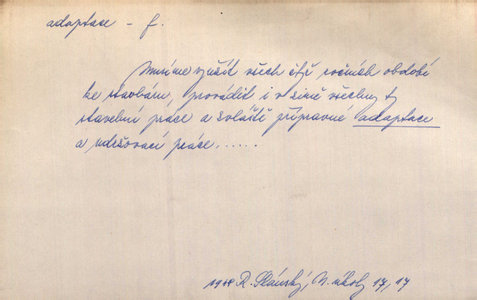 adaptace - f.
Musíme využít všech čtř ročních období
ke stavbám, provádět i v zimě všechny ty
stavební práce a zvláště přípravné adaptace
a udržovací práce......
R. Slánský, N. úkoly 17, 17